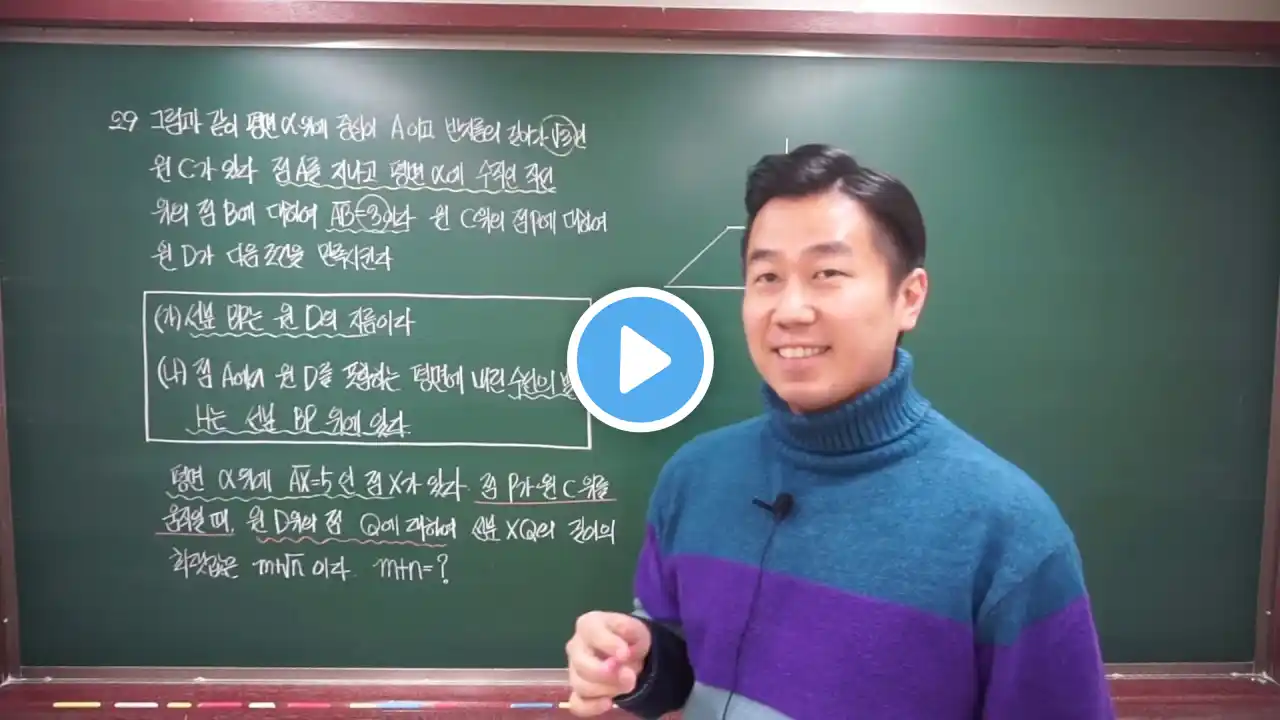 29 그림과 같이 평면 α위에 중심이 A이고 반지름의 길이가 √3인
원 C가 있다 점 A를 지나고 평면 α에 수직인 직선
위의 점 B에 대하여 AB=3이다 원 C위의 점P에 대하여
원 D가 다음 조건을 만족시킨다
(가) 선분 BP는 원 D의 지름이다
(나) 점 A에서 원 D를 포함하는 평면에 내린 수선의 발
H는 선분 BP 위에 있다.
평면 α위에 AX=5인 점 X가 있다. 점 P가 원 C위를
움직일 때, 원 D위의 점 Q에 대하여 선분 XQ의 길이의
최댓값은 m+√n 이다. m+n=?